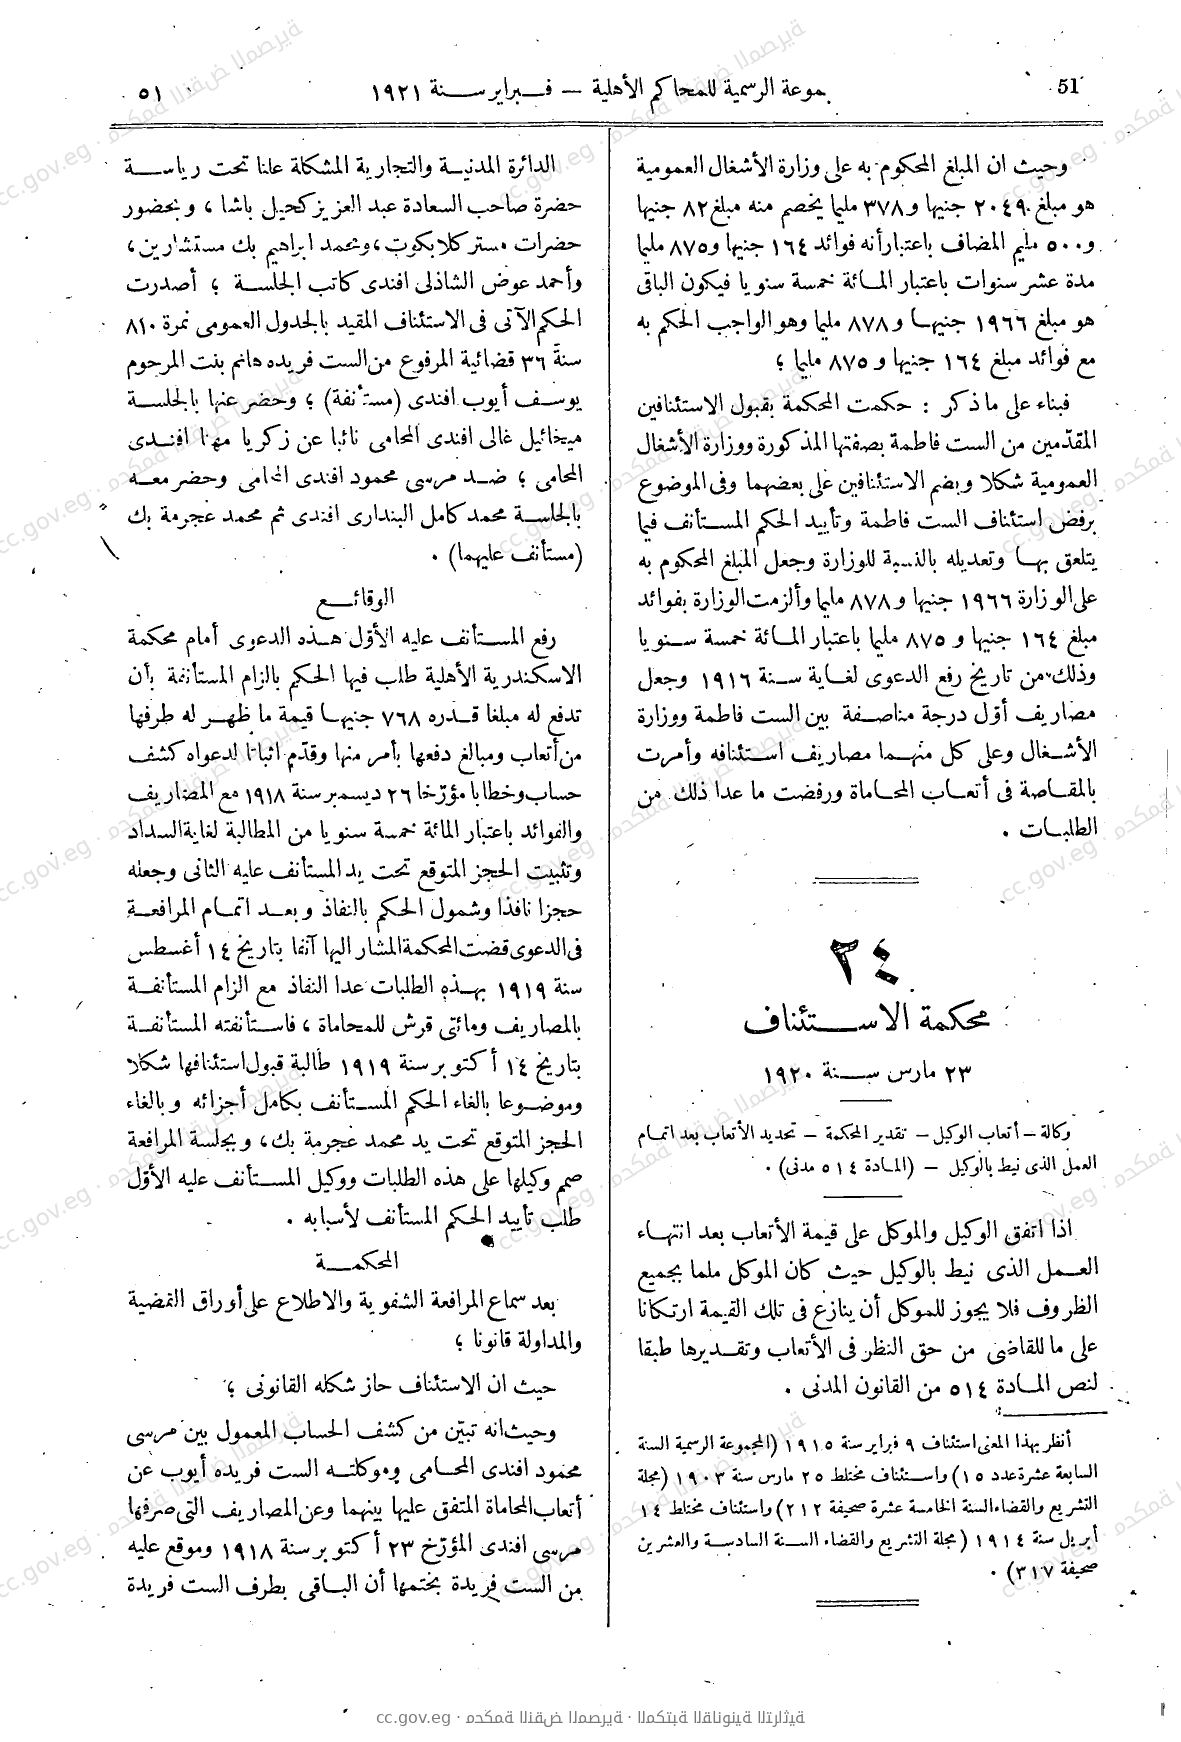 51
مجموعة الرسمية للمحاكم الأهلية — فبراير سنة ١٩٢١
٥١
وحيث ان المبلغ المحكوم به على وزارة الأشغال العمومية
هو مبلغ ٢٠٤٩ جنيها و ٣٧٨ مليما يخصم منه مبلغ ٨٢ جنيها
و ٥٠٠ مليم المضاف باعتبار أنه فوائد ١٦٤ جنيها و ٨٧٥ مليما
مدة عشر سنوات باعتبار المائة خمسة سنويا فيكون الباقى
هو مبلغ ١٩٦٦ جنيها و ٨٧٨ مليما وهو الواجب الحكم به
مع فوائد مبلغ ١٦٤ جنيها و ٨٧٥ مليما ؛
فبناء على ما ذكر : حكمت المحكمة بقبول الاستئنافين
المقدّمين من الست فاطمة بصفتها المذكورة ووزارة الأشغال
العمومية شكلا وبضم الاستئنافين على بعضهما وفى الموضوع
برفض استئناف الست فاطمة وتأييد الحكم المستأنف فيما
يتعلق بها وتعديله بالنسبة للوزارة وجعل المبلغ المحكوم به
على الوزارة ١٩٦٦ جنيها و ٨٧٨ مليما وألزمت الوزارة بفوائد
مبلغ ١٦٤ جنيها و ٨٧٥ مليما باعتبار المائة خمسة سنويا
وذلك من تاريخ رفع الدعوى لغاية سنة ١٩١٦ وجعل
مصاريف أوّل درجة مناصفة بين الست فاطمة ووزارة
الأشغال وعلى كل منهما مصاريف استئنافه وأمرت
بالمقاصة فى أتعاب المحاماة ورفضت ما عدا ذلك من
الطلبات .
٣٤
محكمة الاستئناف
٢٣ مارس سنة ١٩٢٠
وكالة — أتعاب الوكيل — تقدير المحكمة — تحديد الأتعاب بعد اتمام
العمل الذى نيط بالوكيل — (المادة ٥١٤ مدنى) .
اذا اتفق الوكيل والموكل على قيمة الأتعاب بعد انتهاء
العمل الذى نيط بالوكيل حيث كان الموكل ملما بجميع
الظروف فلا يجوز للموكل أن ينازع فى تلك القيمة ارتكانا
على ما للقاضى من حق النظر فى الأتعاب وتقديرها طبقا
لنص المادة ٥١٤ من القانون المدنى .
أنظر بهذا المعنى استئناف ٩ فبراير سنة ١٩١٥ (المجموعة الرسمية السنة
السابعة عشرة عدد ١٥) واستئناف مختلط ٢٥ مارس سنة ١٩٠٣ (مجلة
التشريع والقضاء السنة الخامسة عشرة صحيفة ٢١٢) واستئناف مختلط ١٤
أبريل سنة ١٩١٤ (مجلة التشريع والقضاء السنة السادسة والعشرين
صحيفة ٣١٧) .
الدائرة المدنية والتجارية المشكلة علنا تحت رياسة
حضرة صاحب السعادة عبد العزيز كحيل باشا ، وبحضور
حضرات مستر كلايكوت ، ومحمد ابراهيم بك مستشارين ،
وأحمد عوض الشاذلى افندى كاتب الجلسة ؛ أصدرت
الحكم الآتى فى الاستئناف المقيد بالجدول العمومى نمرة ٨١٠
سنة ٣٦ قضائية المرفوع من الست فريده هانم بنت المرحوم
يوسف أيوب افندى (مستأنفة) ؛ وحضر عنها بالجلسة
ميخائيل غالى افندى المحامى نائبا عن زكريا مهنا افندى
المحامى ؛ ضد مرسى محمود افندى المحامى وحضر معه
بالجلسة محمد كامل البندارى افندى ثم محمد عجرمة بك
(مستأنف عليهما) .
الوقائع
رفع المستأنف عليه الأوّل هذه الدعوى أمام محكمة
الاسكندرية الأهلية طلب فيها الحكم بالزام المستأنفة بأن
تدفع له مبلغا قدره ٧٦٨ جنيها قيمة ما ظهر له طرفها
من أتعاب ومبالغ دفعها بأمر منها وقدّم اثباتا لدعواه كشف
حساب وخطابا مؤرّخا ٢٦ ديسمبر سنة ١٩١٨ مع المصاريف
والفوائد باعتبار المائة خمسة سنويا من المطالبة لغاية السداد
وتثبيت الحجز المتوقع تحت يد المستأنف عليه الثانى وجعله
حجزا نافذا وشمول الحكم بالنفاذ وبعد اتمام المرافعة
فى الدعوى قضت المحكمة المشار اليها آنفا بتاريخ ١٤ أغسطس
سنة ١٩١٩ بهذه الطلبات عدا النفاذ مع الزام المستأنفة
بالمصاريف ومائتى قرش للمحاماة ، فاستأنفته المستأنفة
بتاريخ ١٤ أكتوبر سنة ١٩١٩ طالبة قبول استئنافها شكلا
وموضوعا بالغاء الحكم المستأنف بكامل أجزائه وبالغاء
الحجز المتوقع تحت يد محمد عجرمة بك ، وبجلسة المرافعة
صمم وكيلها على هذه الطلبات ووكيل المستأنف عليه الأوّل
طلب تأييد الحكم المستأنف لأسبابه .
المحكمة
بعد سماع المرافعة الشفوية والاطلاع على أوراق القضية
والمداولة قانونا ؛
حيث ان الاستئناف حاز شكله القانونى ؛
وحيث انه تبيّن من كشف الحساب المعمول بين مرسى
محمود افندى المحامى وموكلته الست فريده أيوب عن
أتعاب المحاماة المتفق عليها بينهما وعن المصاريف التى صرفها
مرسى افندى المؤرّخ ٢٣ أكتوبر سنة ١٩١٨ وموقع عليه
من الست فريدة بختمها أن الباقى بطرف الست فريدة
cc.gov.eg · محكمة النقض المصرية · المكتبة القانونية التراثية